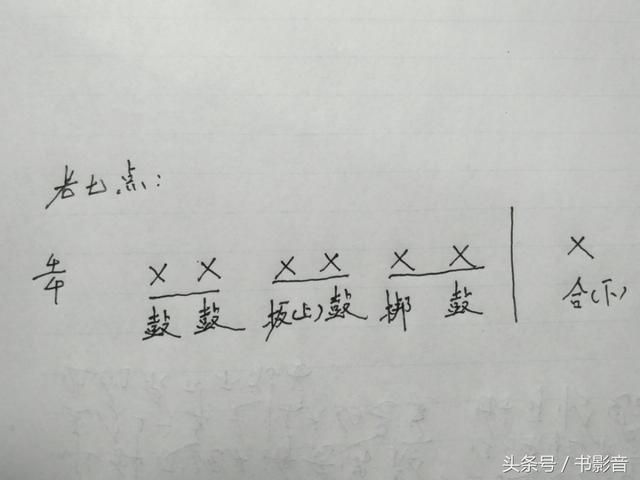 老七点:
4/4 X X X X X X | X
鼓 鼓 板(上) 鼓 梆 鼓 合(下)
头条号 / 书影音